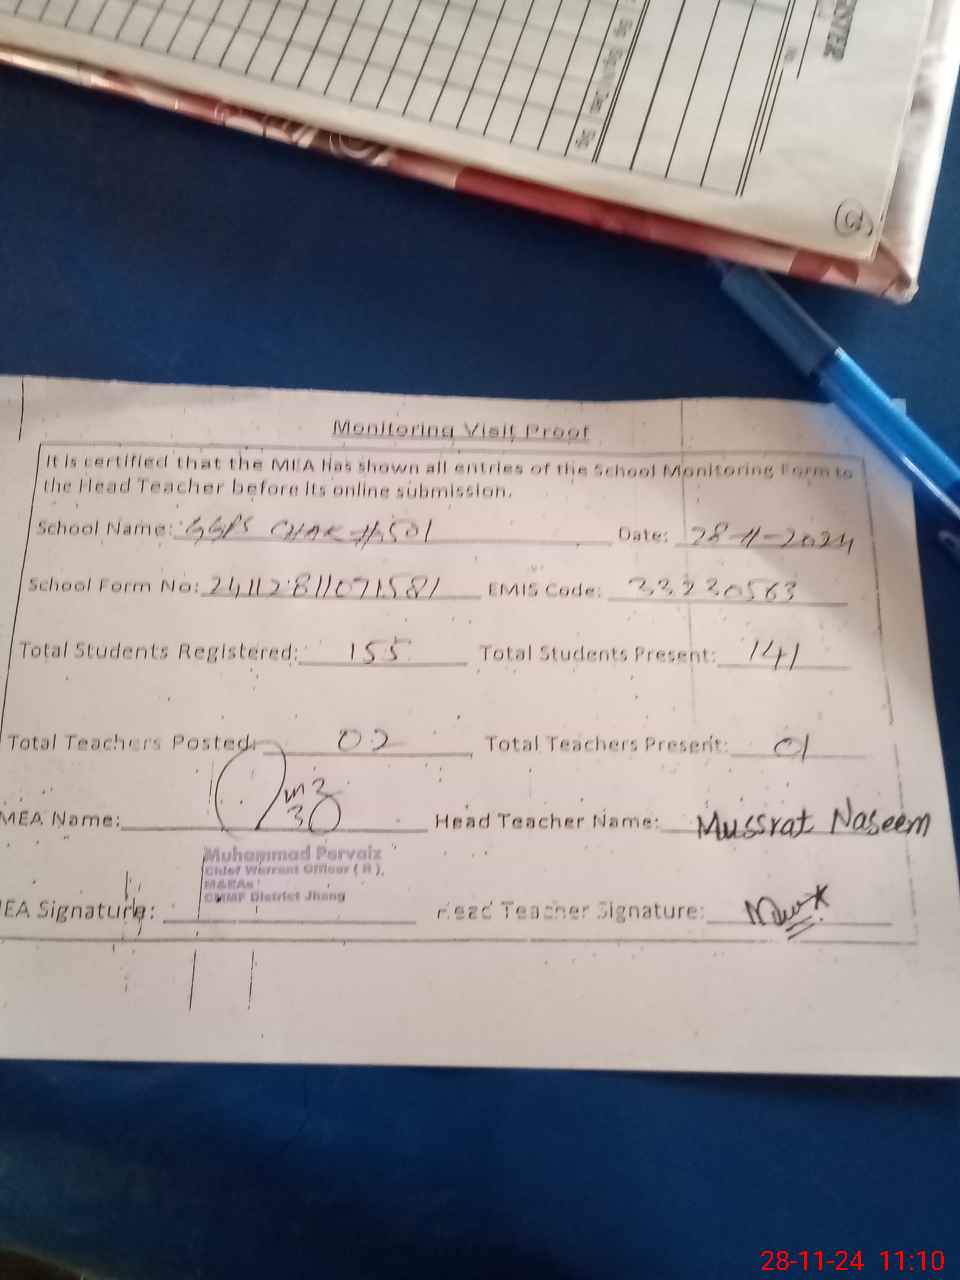 Monitoring Visit Proof
It is certified that the MEA has shown all entries of the School Monitoring Form to
the Head Teacher before its online submission.
School Name: GGPS CHAK # 501 Date: 28-11-2024
School Form No: 24112811071581 EMIS Code: 33230563
Total Students Registered: 155 Total Students Present: 141
Total Teachers Posted: 02 Total Teachers Present: 01
MEA Name: Head Teacher Name: Mussrat Naseem
Muhammad Pervaiz
Chief Warrant Officer ( R ),
M&EAs
CMMF District Jhang
EA Signature: Head Teacher Signature:
28-11-24 11:10